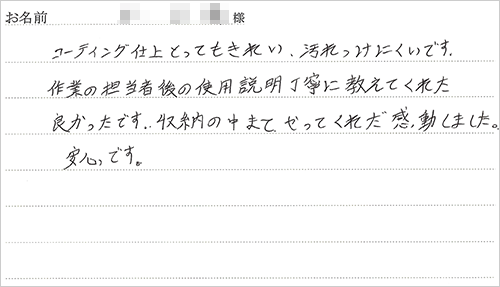 お名前 様
コーティング仕上とってもきれい、汚れつけにくいです.
作業の担当者後の使用説明丁寧に教えてくれた
良かったです.. 収納の中まで やってくれた 感動しました。
安心です。